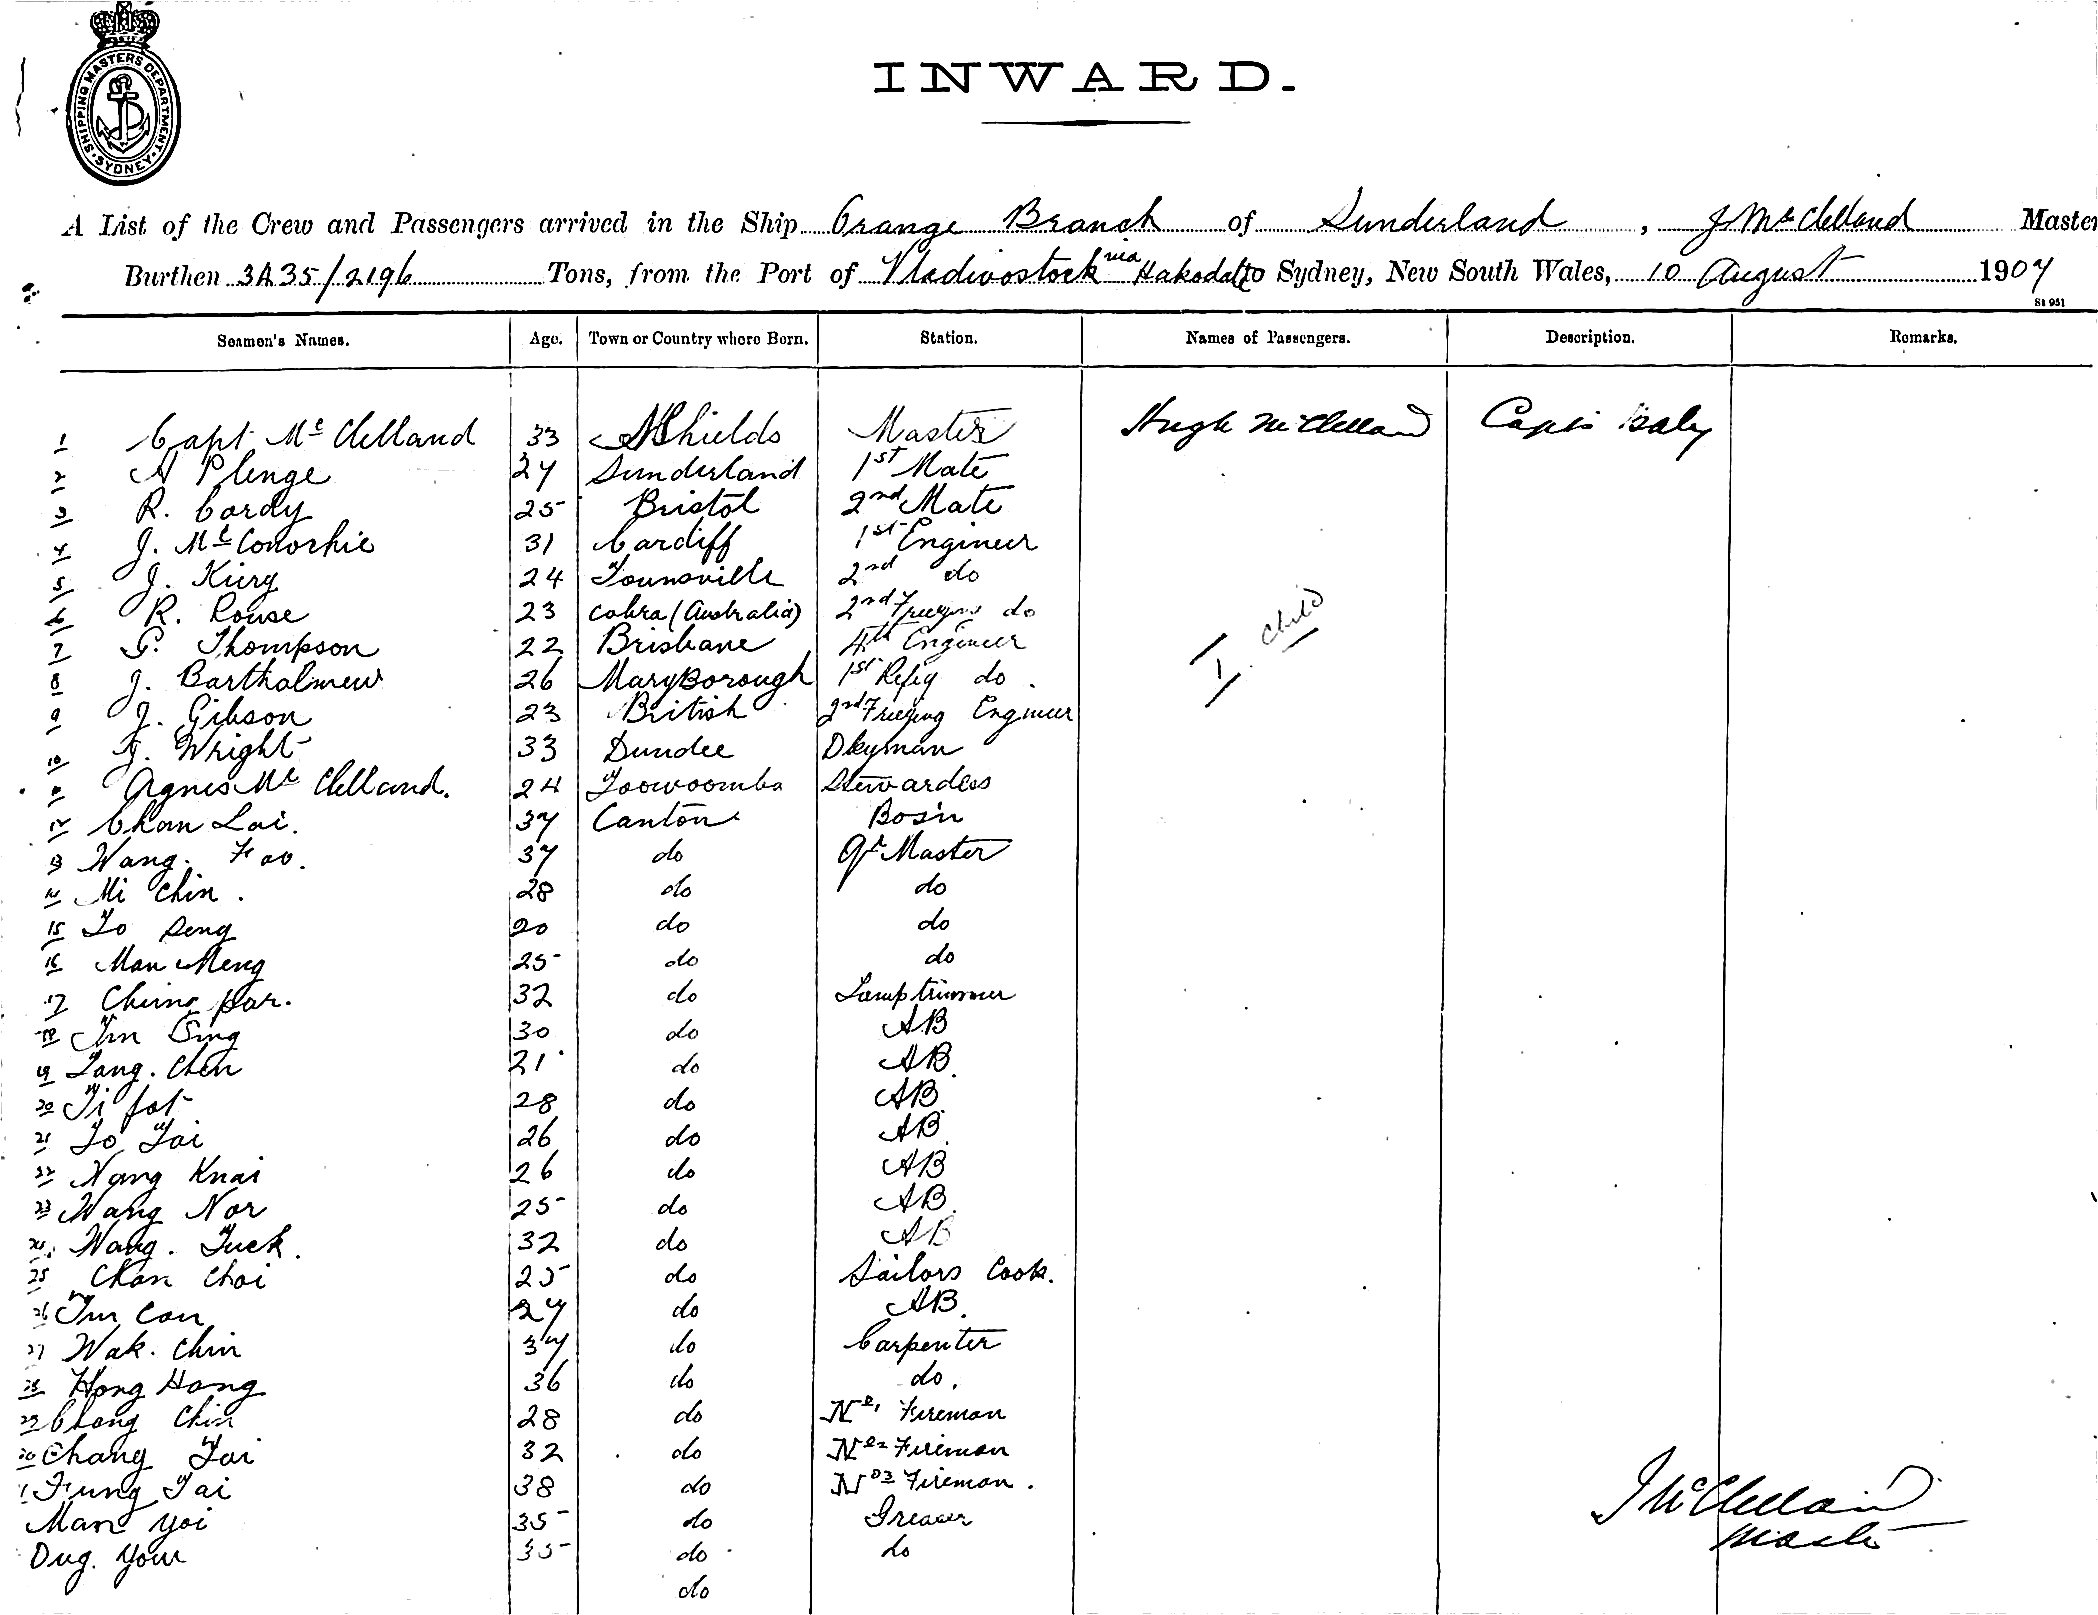 SHIPPING MASTERS DEPARTMENT. SYDNEY
INWARD.
A List of the Crew and Passengers arrived in the Ship Orange Branch of Sunderland, J McClelland Master
Burthen 3435/2196 Tons, from the Port of Vladivostock via Hakodate to Sydney, New South Wales, 10 August 1907
St 951
Seamen's Names. Age. Town or Country where Born. Station. Names of Passengers. Description. Remarks.
1 Capt McClelland 33 N Shields Master Hugh McClelland Capts Baby
2 A Plenge 27 Sunderland 1st Mate
3 R. Cardy 25 Bristol 2nd Mate
4 J. McConorhie 31 Cardiff 1st Engineer
5 J. King 24 Tounsville 2nd do
6 R. Rouse 23 Cobra (Australia) 2nd Freezing do
7 G. Thompson 22 Brisbane 4th Engineer
I. child
8 J. Bartholmew 26 MaryBorough 1st Refig do.
9 J. Gibson 23 British 2nd Freezing Engineer
10 J. Wright 33 Dundee Dkyman
11 Agnes Mc Clelland. 24 Toowoomba Stewardess
12 Chan Lai. 37 Canton Bosn
13 Wang. Foo. 37 do Qr Master
14 Mi Chin. 28 do do
15 To Seng 20 do do
16 Man Meng 25 do do
17 Chung Par. 32 do Lamptrimmer
18 Jim Sing 30 do AB
19 Tang. Chen 21 do AB
20 Ti fat 28 do AB
21 To Tai 26 do AB
22 Nang Knai 26 do AB
23 Wang Nor 25 do AB
24 Wang. Tuck. 32 do AB
25 Chan Choi 25 do Sailors Cook.
26 Tim Can 27 do AB.
27 Wak. Chin 37 do Carpenter
28 Hong Hang 36 do do.
29 Chang Chin 28 do No 1 Fireman
30 Chang Tai 32 do No 2 Fireman
1 Fung Tai 38 do No 3 Fireman.
Man Yoi 35 do Greaser
Dug. Your 35 do do
do
J McClelland
Master